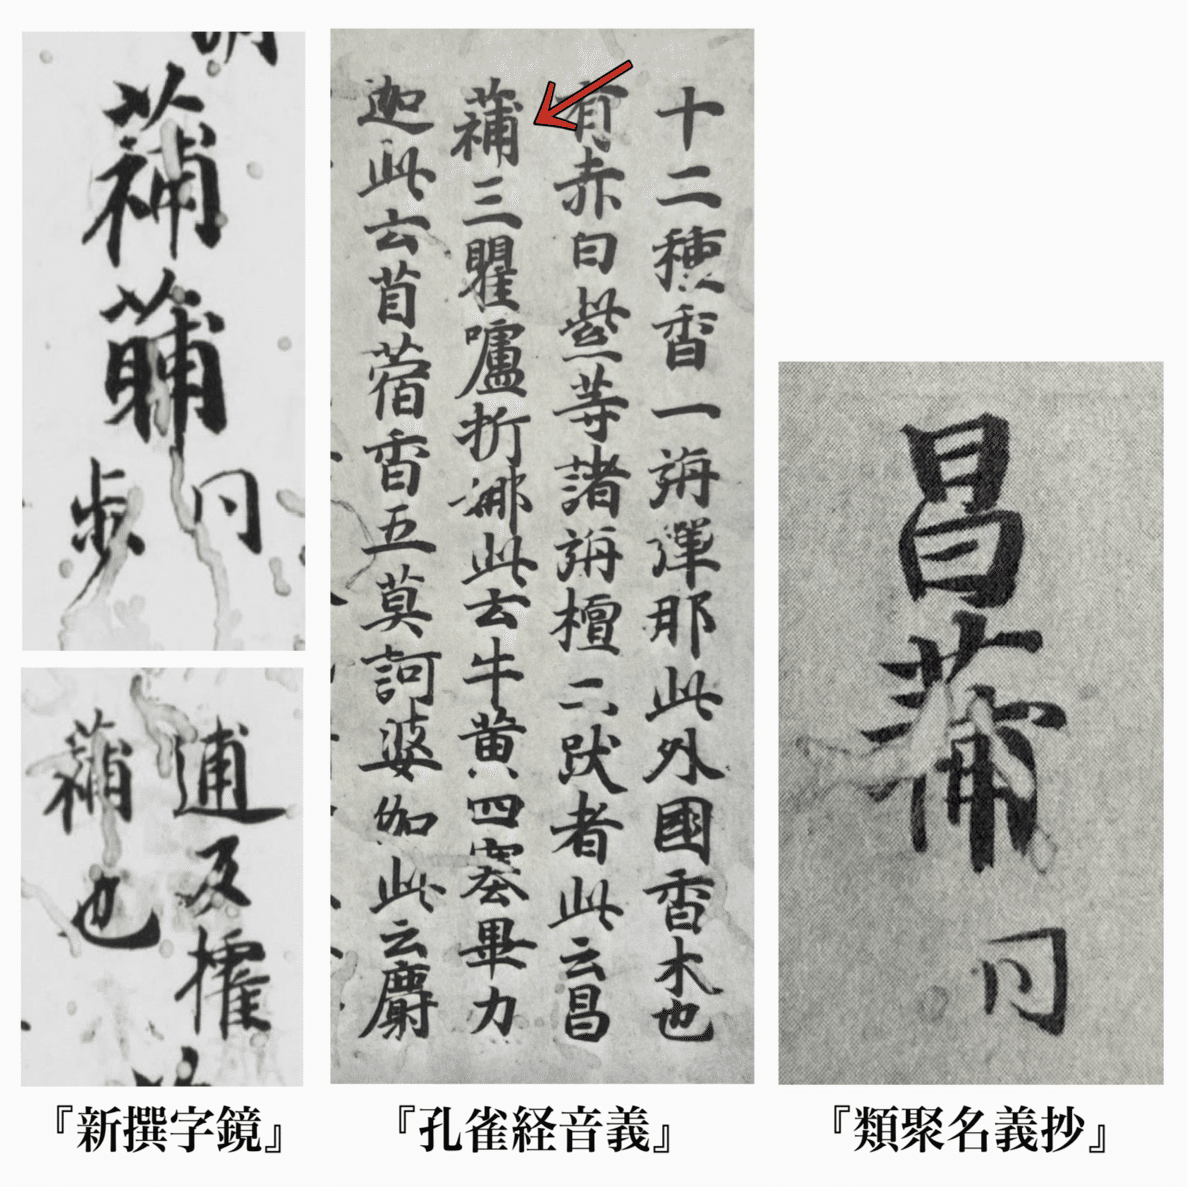 同
歩
逋及權
蒲也
十二種香一旃彈那此外國香木也
有赤白紫等諸旃檀二跋者此云昌
蒲三瞿嚧折娜此云牛黄四塞畢力
迦此云苜蓿香五莫訶婆伽此云麝
昌蒲
同
『新撰字鏡』
『孔雀経音義』
『類聚名義抄』